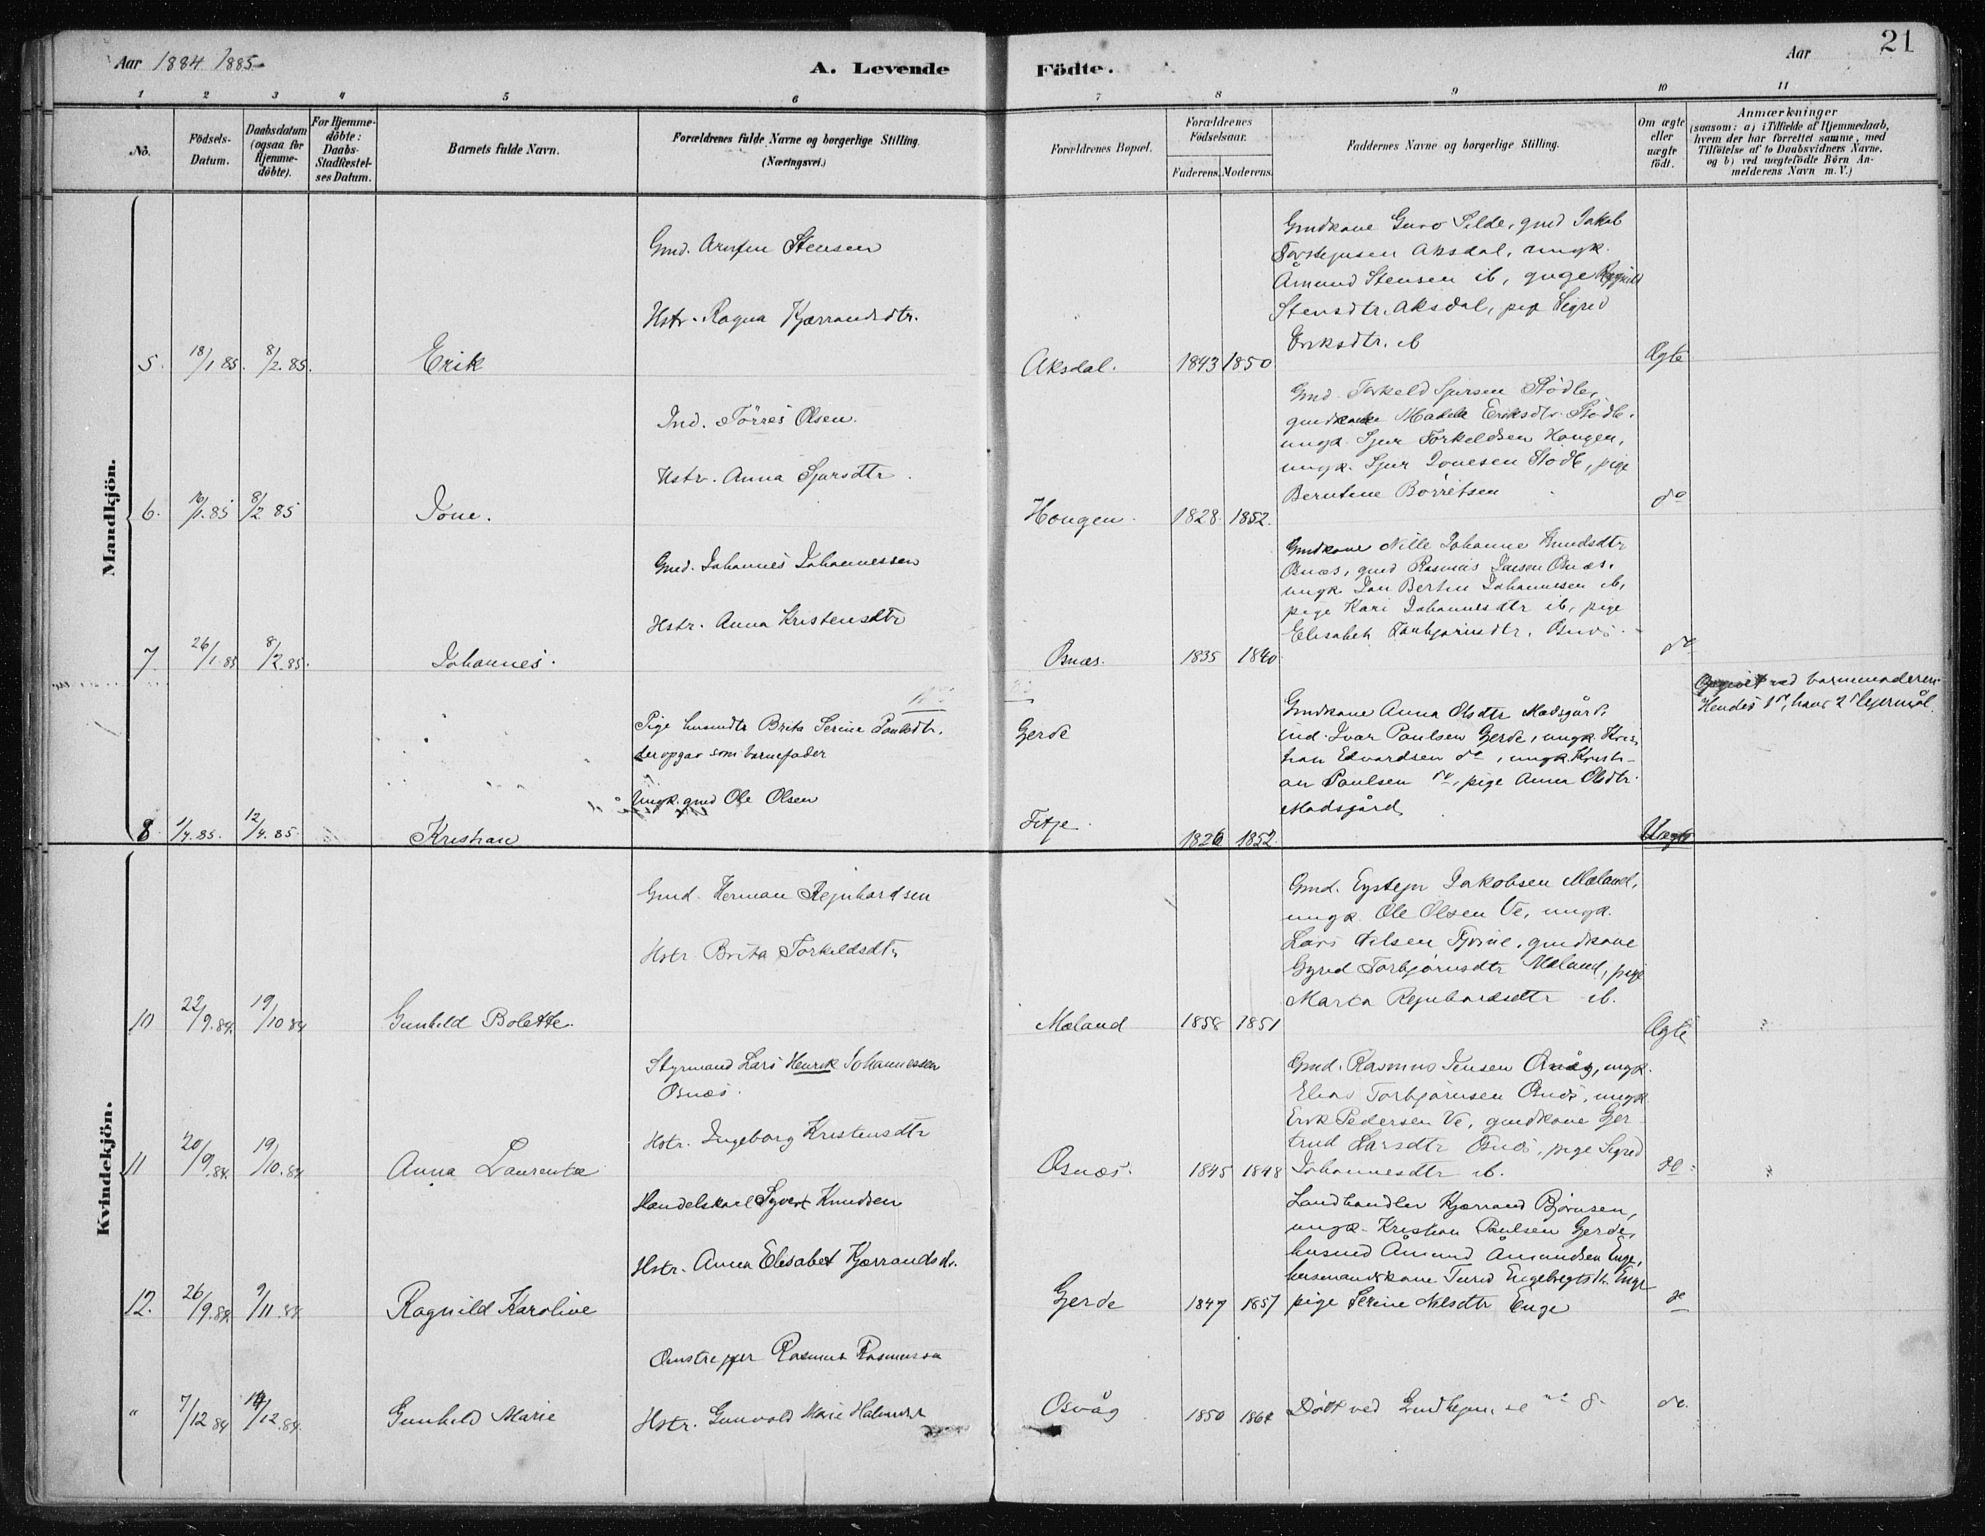 Aar 1884 1885
A. Levende
Födte.
Aar
21
1 2 3 4 5 6 7 8 9 10 11
No.
Födsels-
Datum.
Daabsdatum
(ogsaa for
Hjemme-
döbte).
For Hjemme-
döbte:
Daabs-
Stadfæstel-
ses Datum.
Barnets fulde Navn.
Forældrenes fulde Navne og borgerlige Stilling.
(Næringsvei.)
Forældrenes Bopæl.
Forældrenes
Födselsaar.
Faderens. Moderens.
Faddernes Navne og borgerlige Stilling.
Om ægte
eller
uægte
födt.
Anmærkninger
(saasom: a) i Tilfælde af Hjemmedaab,
hvem der har forrettet samme, med
Tilföielse af to Daabsvidners Navne,
og b) ved uægtefödte Börn An-
melderens Navn m. V.)
Mandkjön.
5. 18/1.85. 8/2.85.
Erik
Gmd. Arnfin Stensen
Hstr. Ragna Kjærrandsdtr.
Aksdal. 1843 1850
Gmdkone Guro Silde, gmd Jakob
Torstejnsen Aksdal, ungk.
Åmund Stensen ib, guge
Stensdtr. Aksdal, pige Sigred
Eriksdtr. ib
Ægte
6. /1.85 8/2 85
Jone.
Ind. Törres Olsen.
Hstr. Anna Sjursdtr.
Hougen. 1828. 1852.
Gmd. Torkeld Sjursen Stödle,
gmdkone Eriksdtr. Stödle.
ungk. Sjur Torkeldsen Hougen,
ungk. Sjur Jonesen Stödle, pige
Berntine Börretsen
do
7 26/1.85 8/2.85.
Johannes.
Gmd. Johannes Johannessen
Hstr. Anna Kristensdtr
Osnæs. 1835 1840
Gmdkone Nille Johanne Knudsdtr
Osnæs, gmd Rasmus Jensen Osnæs,
ungk Jan Bertin Johannesen ib,
pige Kari Johannesdtr ib, pige
Elisabeth Torbjørnsdtr. Osnæs.
do
8. 1/4.85. 12/4.85.
Kristian
Pige husmdtr Brita Serine Paulsdtr.
der opgav som barnefader
Ungk. gmd Ole Olsen
Gerde
Fitje. 1826 1852.
Gmdkone Anna Olsdtr Madsgård,
ind. Ivar Paulsen Gerde, ungk. Kris-
tian Edvardsen do, ungk. Kristi-
an Paulsen do, pige Anna Olsdtr.
Madsgård
Uægte
Opgivet ved barnemoderen.
Hendes 1ste, hans 2det lejermål.
Kvindekjön.
10 22/9.84. 19/10 84
Gunhild Bolette.
Gmd. Herman Rejnhardsen
Hstr Brita Torkeldsdtr
Mæland 1858 1851
Gmd. Eystejn Jakobsen Mæland,
ungk. Ole Olsen Ve, ungk.
Lars Nilsen, gmdkone
Gyrid Torbjørnsdtr Mæland, pige
Marta Rejnhardsdtr ib.
Ægte
11 20/9.84. 19/10.84
Anna Laurentze
Styrmand Lars Henrik Johannessen
Osnæs.
Hstr. Ingeborg Kristensdtr
Osnæs. 1845 1848
Gmd. Rasmus Jensen, ungk.
Elias Torbjørnsen Osnæs, ungk
Erik Pedersen Ve, gmdkone Ger-
trud Larsdtr Osnæs, pige Sigred
Johannesdtr ib.
do
12. 26/9.84. 9/11.84
Ragnild Karoline
Handelskarl Syvert Knudsen
Hstr. Anna Elisabet Kjærrandsd.
Gerde 1847 1857
Landhandler Kjærrand Bjørnsen,
ungk. Kristian Paulsen Gerde,
husmd Åmund Åmundsen Enge,
husmandskone Turid Engebregtsdtr. Enge
pige Serine Nilsdtr Enge
do
" 7/12 84 14/12.84.
Gunhild Marie
Omstrejper Rasmus Rasmussen
Hstr. Gunvold Marie
Osvåg 1850 1864
Döbt ved, se no 8.
do.